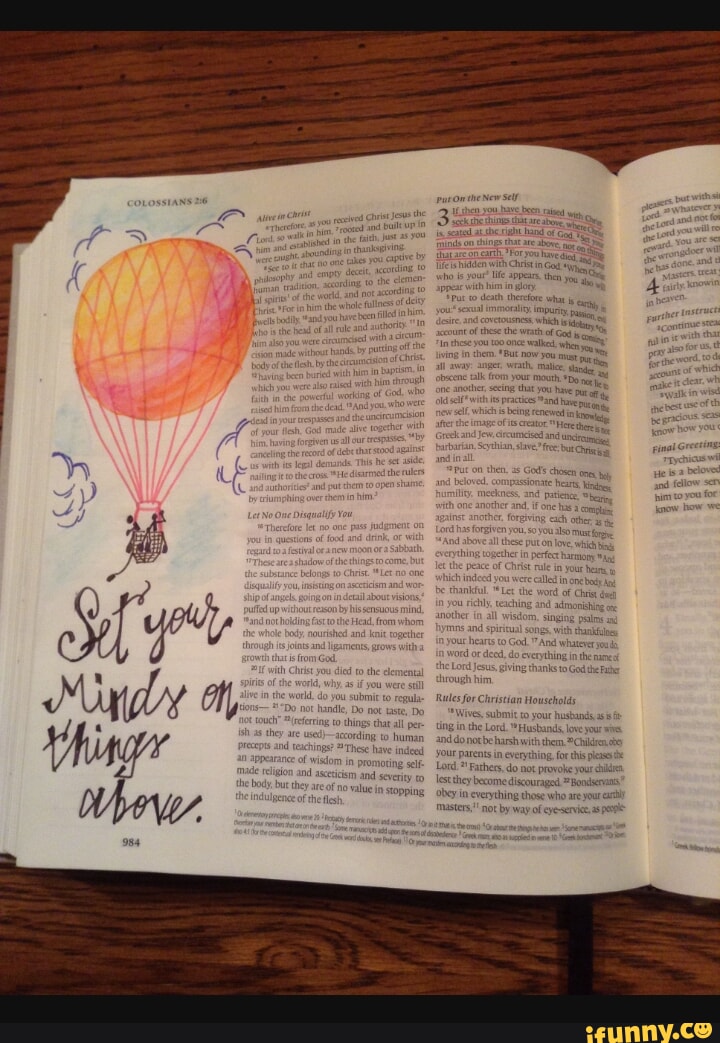 COLOSSIANS 2:6
Set your
Minds on
things
above.
984
Alive in Christ
⁶Therefore, as you received Christ Jesus the
Lord, so walk in him, ⁷rooted and built up in
him and established in the faith, just as you
were taught, abounding in thanksgiving.
⁸See to it that no one takes you captive by
philosophy and empty deceit, according to
human tradition, according to the elemen-
tal spirits¹ of the world, and not according to
Christ. ⁹For in him the whole fullness of deity
dwells bodily, ¹⁰and you have been filled in him,
who is the head of all rule and authority. ¹¹In
him also you were circumcised with a circum-
cision made without hands, by putting off the
body of the flesh, by the circumcision of Christ,
¹²having been buried with him in baptism, in
which you were also raised with him through
faith in the powerful working of God, who
raised him from the dead. ¹³And you, who were
dead in your trespasses and the uncircumcision
of your flesh, God made alive together with
him, having forgiven us all our trespasses, ¹⁴by
canceling the record of debt that stood against
us with its legal demands. This he set aside,
nailing it to the cross. ¹⁵He disarmed the rulers
and authorities² and put them to open shame,
by triumphing over them in him.³
Let No One Disqualify You
¹⁶Therefore let no one pass judgment on
you in questions of food and drink, or with
regard to a festival or a new moon or a Sabbath.
¹⁷These are a shadow of the things to come, but
the substance belongs to Christ. ¹⁸Let no one
disqualify you, insisting on asceticism and wor-
ship of angels, going on in detail about visions,⁴
puffed up without reason by his sensuous mind,
¹⁹and not holding fast to the Head, from whom
the whole body, nourished and knit together
through its joints and ligaments, grows with a
growth that is from God.
²⁰If with Christ you died to the elemental
spirits of the world, why, as if you were still
alive in the world, do you submit to regula-
tions— ²¹"Do not handle, Do not taste, Do
not touch" ²²(referring to things that all per-
ish as they are used)—according to human
precepts and teachings? ²³These have indeed
an appearance of wisdom in promoting self-
made religion and asceticism and severity to
the body, but they are of no value in stopping
the indulgence of the flesh.
Put On the New Self
3 If then you have been raised with Christ,
seek the things that are above, where Christ
is, seated at the right hand of God. ²Set your
minds on things that are above, not on things
that are on earth. ³For you have died, and your
life is hidden with Christ in God. ⁴When Christ
who is your⁵ life appears, then you also will
appear with him in glory.
⁵Put to death therefore what is earthly in
you:⁶ sexual immorality, impurity, passion, evil
desire, and covetousness, which is idolatry. ⁶On
account of these the wrath of God is coming.⁷
⁷In these you too once walked, when you were
living in them. ⁸But now you must put them
all away: anger, wrath, malice, slander, and
obscene talk from your mouth. ⁹Do not lie to
one another, seeing that you have put off the
old self⁸ with its practices ¹⁰and have put on the
new self, which is being renewed in knowledge
after the image of its creator. ¹¹Here there is not
Greek and Jew, circumcised and uncircumcised,
barbarian, Scythian, slave,⁹ free; but Christ is all,
and in all.
¹²Put on then, as God's chosen ones, holy
and beloved, compassionate hearts, kindness,
humility, meekness, and patience, ¹³bearing
with one another and, if one has a complaint
against another, forgiving each other; as the
Lord has forgiven you, so you also must forgive.
¹⁴And above all these put on love, which binds
everything together in perfect harmony. ¹⁵And
let the peace of Christ rule in your hearts, to
which indeed you were called in one body. And
be thankful. ¹⁶Let the word of Christ dwell
in you richly, teaching and admonishing one
another in all wisdom, singing psalms and
hymns and spiritual songs, with thankfulness
in your hearts to God. ¹⁷And whatever you do,
in word or deed, do everything in the name of
the Lord Jesus, giving thanks to God the Father
through him.
Rules for Christian Households
¹⁸Wives, submit to your husbands, as is fit-
ting in the Lord. ¹⁹Husbands, love your wives,
and do not be harsh with them. ²⁰Children, obey
your parents in everything, for this pleases the
Lord. ²¹Fathers, do not provoke your children,
lest they become discouraged. ²²Bondservants,¹⁰
obey in everything those who are your earthly
masters,¹¹ not by way of eye-service, as people-
pleasers, but with
Lord. ²³Whatever
the Lord and not
the Lord you will
reward. You are
the wrongdoer
he has done, and
4 Masters, treat
fairly, knowin
in heaven.
Further Instructi
²Continue
ful in it with
pray also for us,
for the word, to
account of which
make it clear,
⁵Walk in
the best use of
be gracious,
know how you
Final Greeting
⁷Tychicus
He is a beloved
and fellow
him to you for
know how we
ifunny.co